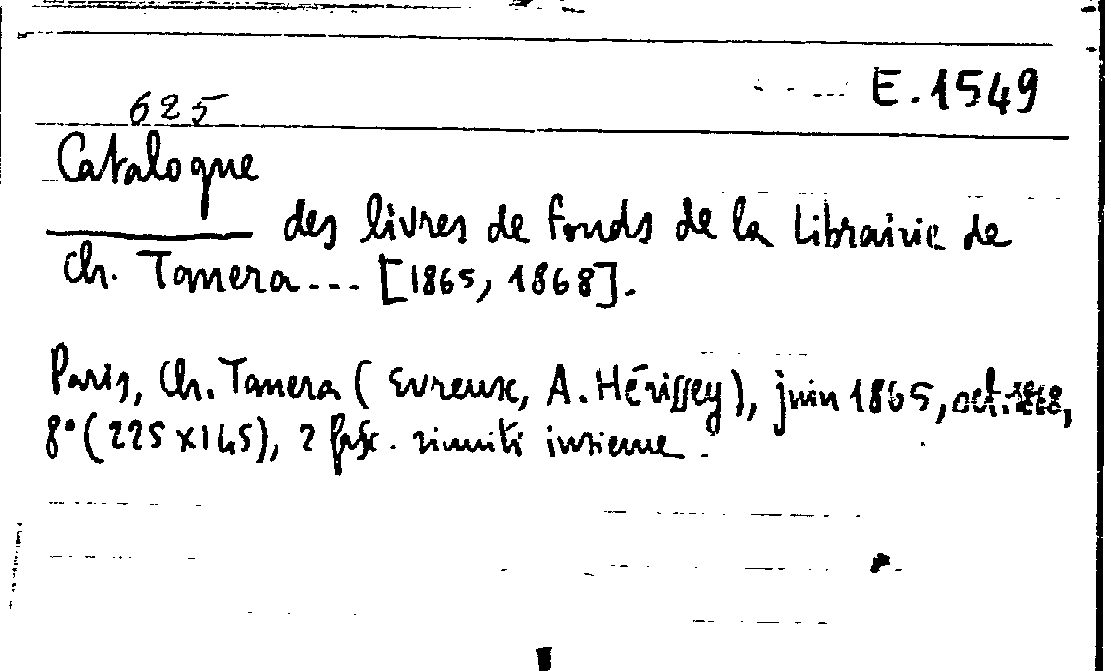 E.1549
625
Catalogue
des livres de fonds de la Librairie de
Ch. Tanera... [1865, 1868].
Paris, Ch. Tanera (Evreux, A. Hérissey), juin 1865, oct. 1868,
8° (225 x 145), 2 fasc. riuniti insieme.